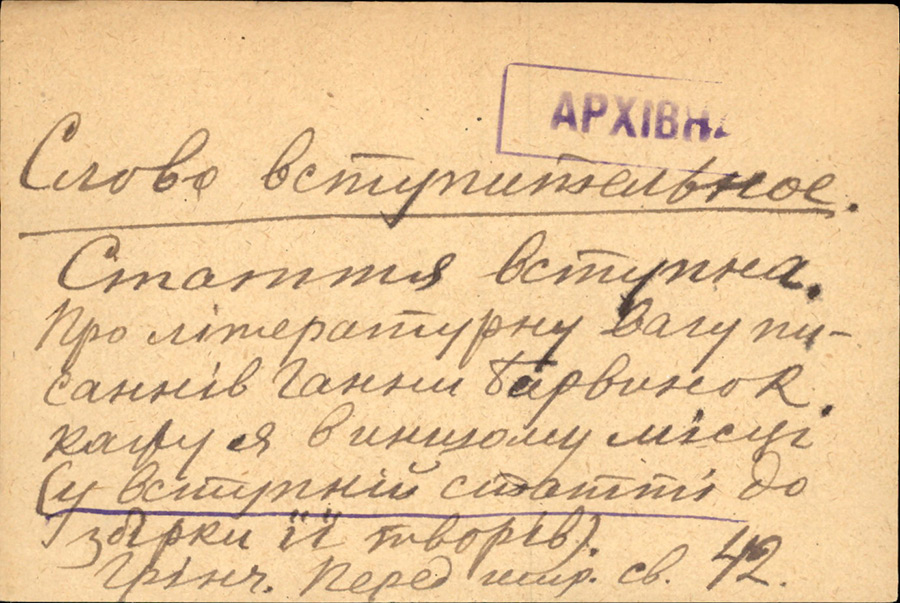 АРХІВН
Слово вступительное.
Стаття вступна.
Про літературну вагу пи-
саннів Ганни Барвінок
кажу я в иншому місці
(у вступній статті до
збірки її творів).
Грінч. Перед шир. св. 42.